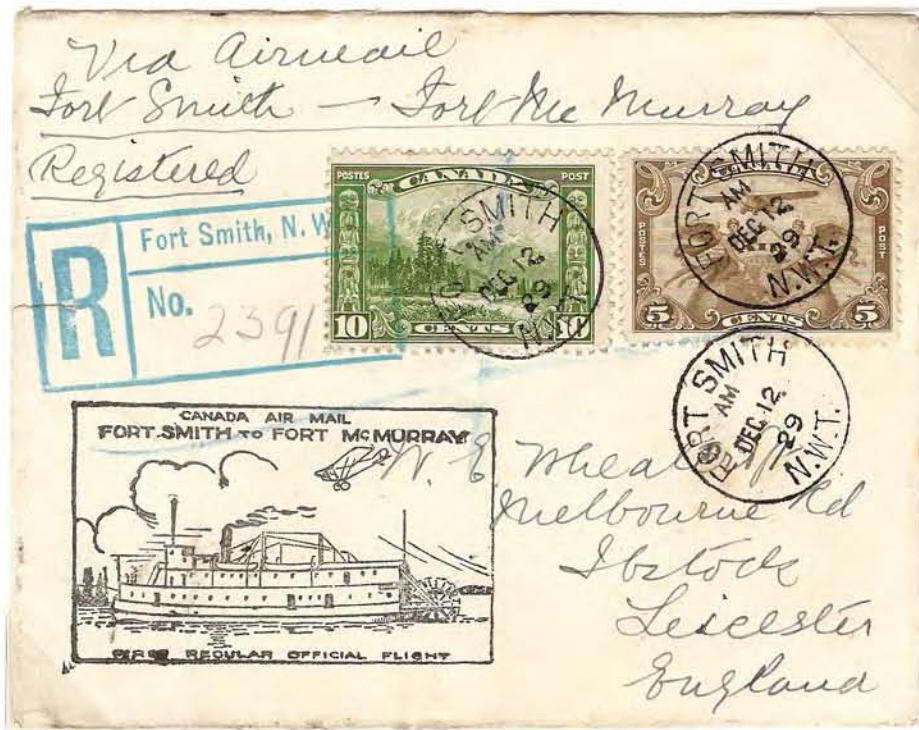 Via Airmail
Fort Smith — Fort Mc Murray
Registered
POSTES CANADA POST
10 CENTS 10
FORT SMITH
AM
DEC 12
29
N.W.T.
CANADA
POSTES POST
5 CENTS 5
FORT SMITH
AM
DEC 12
29
N.W.T.
R
Fort Smith, N. W
No. 2391
FORT SMITH
AM
DEC 12
29
N.W.T.
CANADA AIR MAIL
FORT SMITH TO FORT McMURRAY
FIRST REGULAR OFFICIAL FLIGHT
W. E.
Melbourne Rd
Ibstock
Leicester
England